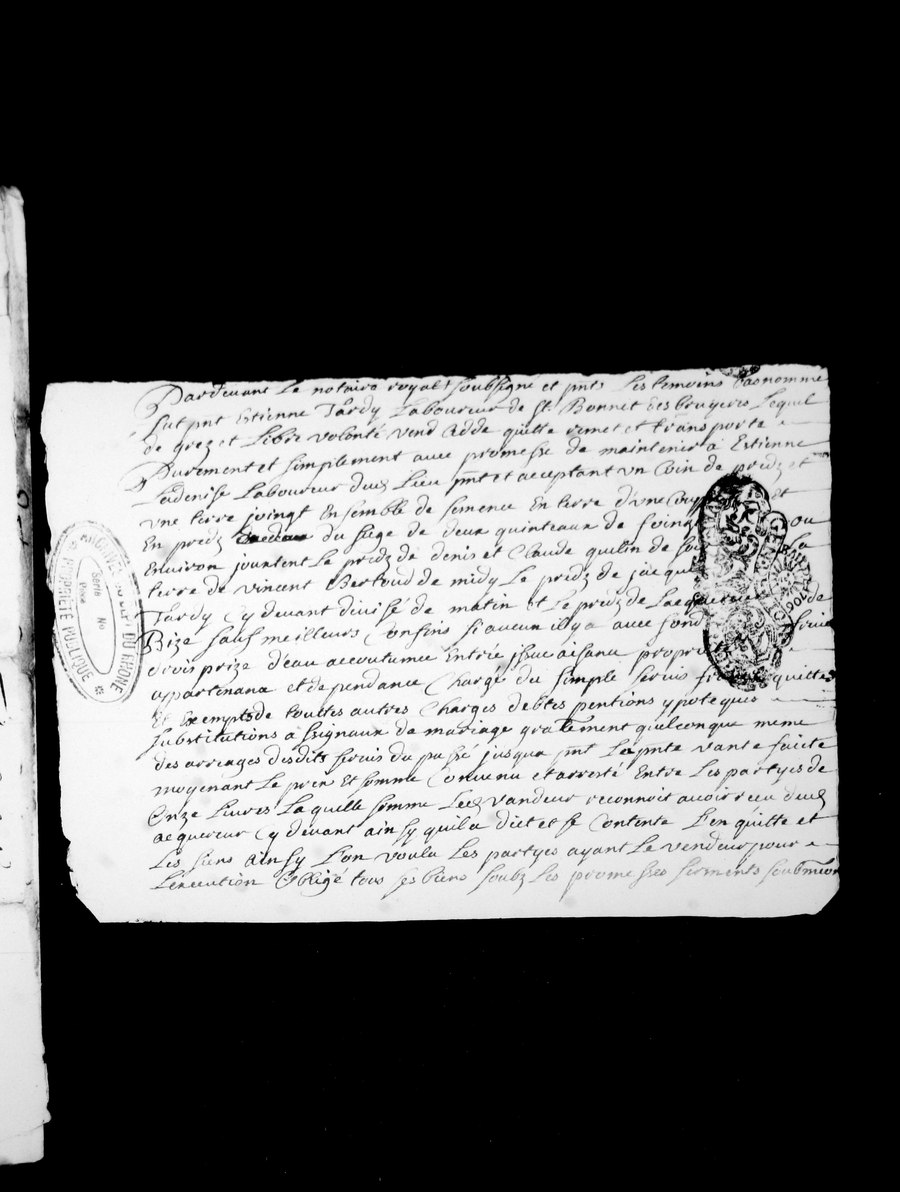 Pardevant le notaire royal soubsigné et pnts les temoins bas nommé
fut pnt Estienne Tardy Laboureur de St. Bonnet des bruyeres Lequel
de grez et Libre volonté vend cedde quitte remet et transporte
Purement et simplement avec promesse de maintenir a Estienne
Ladenise Laboureur dud Lieu pnt et acceptant un Coin de predz et
une terre joingt Ensemble de semence En terre d'une
En predz du siege de deux quinteaux de foing ou
Environ jouxtent Le predz de denis et Claude quilin de la
terre de vincent Bertoud de midy Le predz de jacque
Tardy Cy devant divisé de matin et Le predz de de
Bize sauf meilleurs Confins si aucun il y a avec fond
drois prize d'eau accoutumée Entrée issue aisance
appartenana et dependance Chargé du simple servis quitte
Et Exempt de touttes autres Charges debtes pentions ypoteques
substitutions assignaux de mariage gratement quielconque meme
des arreages desdits servis du passé jusqua pnt La pnte vante faicte
moyenant Le prix Et somme Convenu et arresté Entre Les partyes de
Onze Livres Laquelle somme Led vandeur reconnoit avoir receu dud
acquereur Cy devant ainsy quil a dict et se Contente L'en quitte et
Les siens ainsy L'on voulu Les partyes ayant Le vendeur pour
L'execution obligé tous ses biens soubz Les promesses serments soubmission
ARCHIVES DU DEPT DU RHONE
PROPRIETE PUBLIQUE
Serie
Pièce
No
GENERALITE